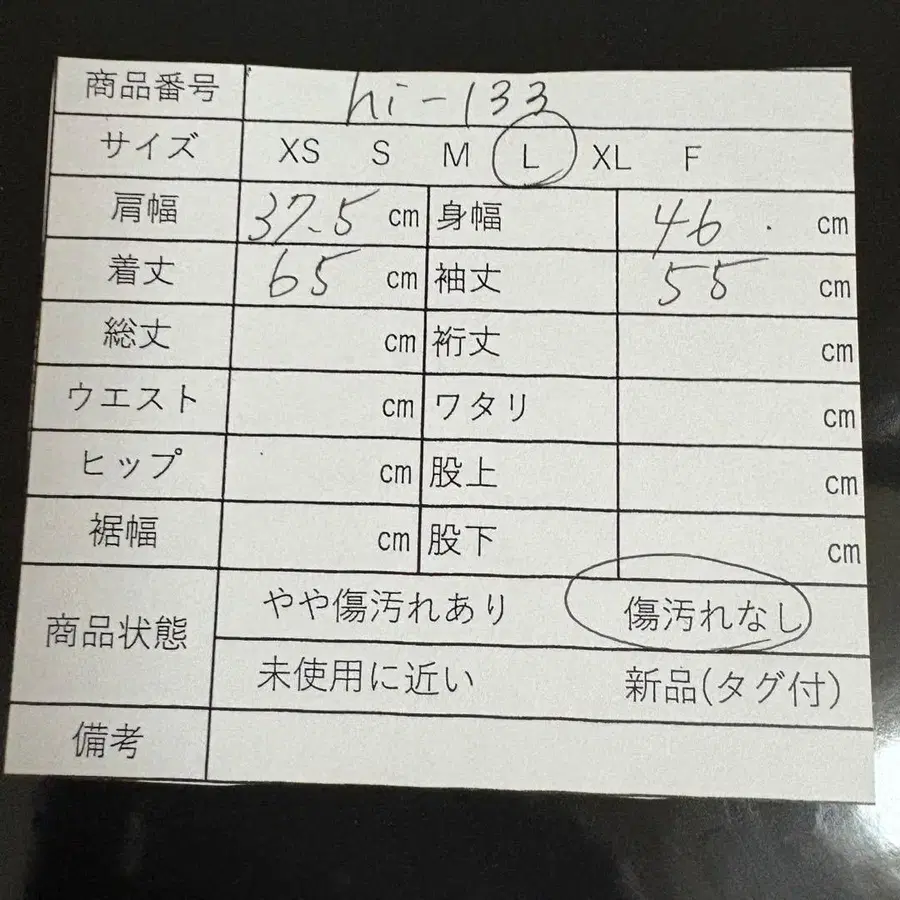 商品番号 hi-133
サイズ XS S M L XL F
肩幅 37.5 cm 身幅 46. cm
着丈 65 cm 袖丈 55 cm
総丈 cm 裄丈 cm
ウエスト cm ワタリ cm
ヒップ cm 股上 cm
裾幅 cm 股下 cm
商品状態 やや傷汚れあり 傷汚れなし
未使用に近い 新品(タグ付)
備考